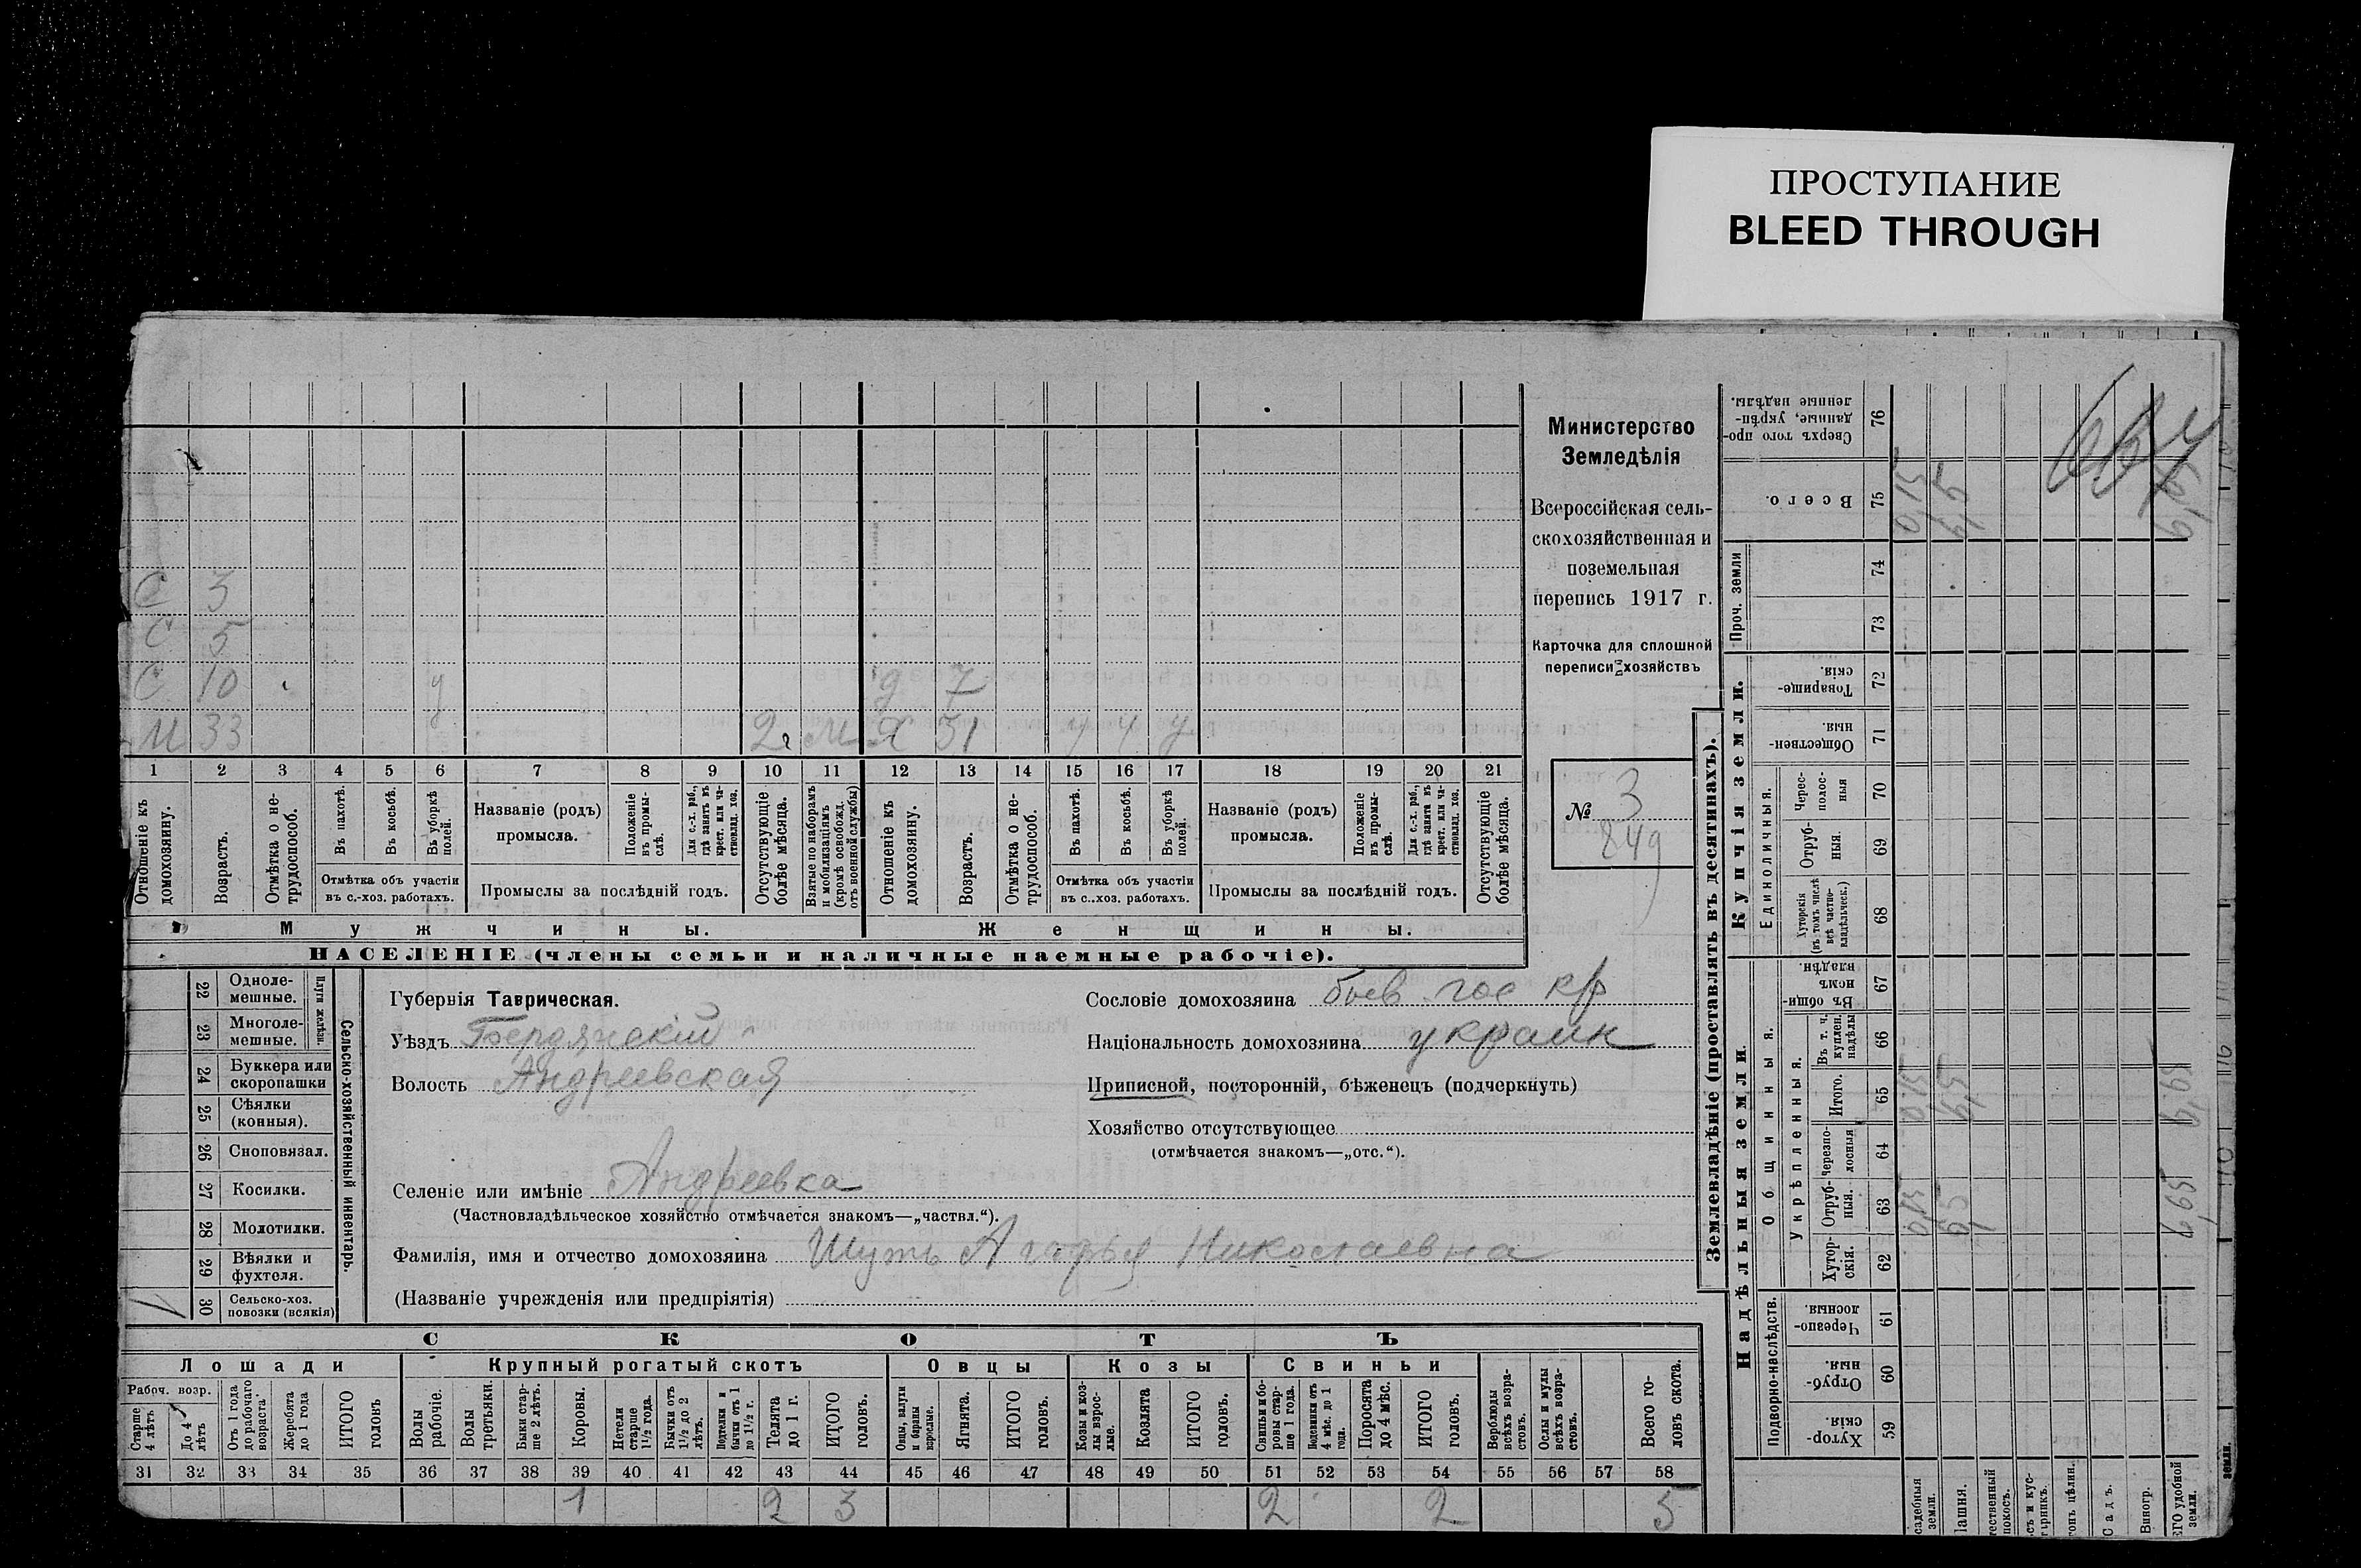 ПРОСТУПАНИЕ
BLEED THROUGH
Министерство
Земледѣлія
Всероссійская сель-
скохозяйственная и
поземельная
перепись 1917 г.
Карточка для сплошной
переписи хозяйствъ
№ 3
849
С 3
С 5
С 10 у д 7
М 33 2 М Ж 31 у у у
1 2 3 4 5 6 7 8 9 10 11 12 13 14 15 16 17 18 19 20 21
Отношеніе къ домохозяину.
Возрастъ.
Отмѣтка о не-трудоспособ.
Въ пахотѣ.
Въ косьбѣ.
Въ уборкѣ полей.
Отмѣтка объ участіи
въ с.-хоз. работахъ.
Названіе (родъ)
промысла.
Положеніе въ промы-слѣ.
Для с.-х. раб., гдѣ занятъ въ крест. или ча-стновлад. хоз.
Промыслы за послѣдній годъ.
Отсутствующіе болѣе мѣсяца.
Взятые по наборамъ и мобилизаціямъ (кромѣ освобожд. отъ военной службы)
Отношеніе къ домохозяину.
Возрастъ.
Отмѣтка о не-трудоспособ.
Въ пахотѣ.
Въ косьбѣ.
Въ уборкѣ полей.
Отмѣтка объ участіи
въ с..хоз. работахъ.
Названіе (родъ)
промысла.
Положеніе въ промы-слѣ.
Для с.-х. раб., гдѣ занята въ крест. или ча-стновлад. хоз.
Промыслы за послѣдній годъ.
Отсутствующіе болѣе мѣсяца.
Мужчины. Женщины.
НАСЕЛЕНІЕ (члены семьи и наличные наемные рабочіе).
Сельско-хозяйственный инвентарь.
Плуги желѣзн.
22 Одноле-мешные.
23 Многоле-мешные.
24 Буккера или скоропашки
25 Сѣялки (конныя).
26 Сноповязал.
27 Косилки.
28 Молотилки.
29 Вѣялки и фухтеля.
30 Сельско-хоз. повозки (всякія) 1
Губернія Таврическая.
Уѣздъ Бердянскій
Волость Андреевская
Селеніе или имѣніе Андреевка
(Частновладѣльческое хозяйство отмѣчается знакомъ—„частвл.“).
Фамилія, имя и отчество домохозяина Шуть Агафья Николаевна
(Названіе учрежденія или предпріятія)
Сословіе домохозяина бывш гос кр
Національность домохозяина украин
Приписной, посторонній, бѣженецъ (подчеркнуть)
Хозяйство отсутствующее
(отмѣчается знакомъ—„отс.“).
СКОТЪ
Лошади Крупный рогатый скотъ Овцы Козы Свиньи
Рабоч. возр.
Старше 4 лѣтъ
До 4 лѣтъ
Отъ 1 года до рабочаго возраста
Жеребята до 1 года
ИТОГО головъ
Волы рабочіе.
Волы третьяки.
Быки стар-ше 2 лѣтъ.
Коровы.
Нетели старше 1½ года.
Бычки отъ 1½ до 2 лѣтъ.
Подтелки и бычки отъ 1 до 1½ г.
Телята до 1 г.
ИТОГО головъ.
Овцы, валухи и бараны взрослые.
Ягнята.
ИТОГО головъ.
Козы и коз-лы взрос-лые.
Козлята
ИТОГО головъ.
Свиньи и бо-ровы стар-ше 1 года.
Подсвинки отъ 4 мѣс. до 1 года.
Поросята до 4 мѣс.
ИТОГО головъ.
Верблюды всѣхъ возра-стовъ.
Ослы и мулы всѣхъ возра-стовъ.
Всего го-ловъ скота.
31 32 33 34 35 36 37 38 39 40 41 42 43 44 45 46 47 48 49 50 51 52 53 54 55 56 57 58
1 2 3 2 2 5
Землевладѣніе (проставлять въ десятинахъ).
Надѣльныя земли.
Купчія земли.
Проч. земли
Подворно-наслѣдств.
Общинныя.
Укрѣпленныя.
Единоличныя.
76 Сверхъ того про-данные, укрѣп-ленные надѣлы.
75 Всего.
74
73
72 Товарище-скія.
71 Обществен-ныя
70 Черес-полос-ныя
69 Отруб-ныя.
68 Хуторскія (въ томъ числѣ всѣ частно-владѣльческ.)
67 Въ общин-номъ владѣн.
66 Въ т. ч. куплен. надѣлы
65 Итого.
64 Черезпо-лосныя
63 Отруб-ныя.
62 Хутор-скія.
61 Черезпо-лосныя
60 Отруб-ныя.
59 Хутор-скія.
садебныя земли.
Пашня.
тественный покосъ.
съ и кус-тарникъ.
онъ цѣлин.
Садъ.
Виногр.
ЕГО удобной земли.
земли.